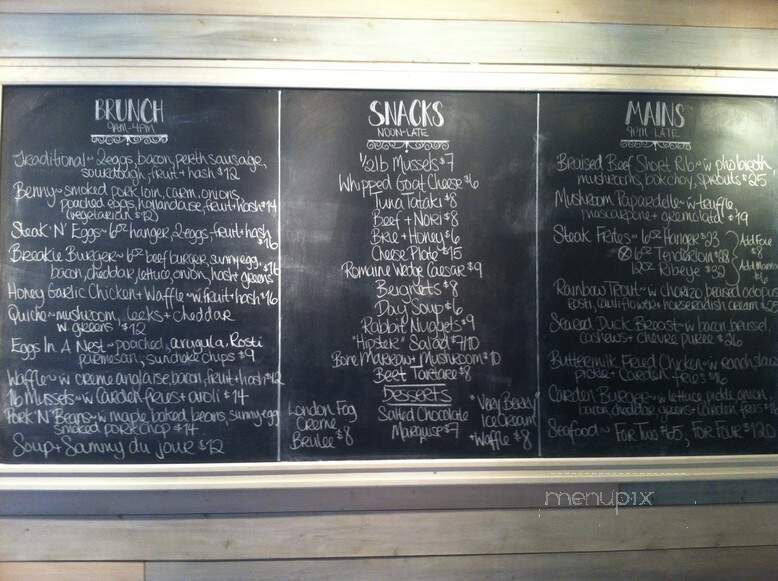 BRUNCH
9AM-4PM
Traditional~ 2eggs, bacon, perth sausage,
sourdough, fruit + hash $12
Benny~ smoked pork loin, carm. onions,
poached eggs, hollandaise, fruit + hash $14
(vegetarian $12)
Steak 'N' Eggs~ 6oz hanger, 2eggs, fruit + hash
$16
Breakie Burger~ 6oz beef burger, sunny egg,
bacon, cheddar, lettuce, onion, hash + greens $16
Honey Garlic Chicken + Waffle ~ w fruit + hash $16
Quiche ~ mushroom, leeks + cheddar
w greens $12
Eggs In A Nest ~ poached, arugula, Rosti
parmesan, sunchoke chips $9
Waffle ~ w creme anglaise, bacon, fruit + hash $12
1lb Mussels ~ w Carden fries + aioli $14
Pork 'N' Beans ~ w maple baked beans, sunny egg
smoked pork chop $14
Soup + Sammy du jour $12
SNACKS
NOON-LATE
1/2 lb Mussels $7
Whipped Goat Cheese $6
Tuna Tataki $8
Beef + Nori $8
Brie + Honey $6
Cheese Plate $15
Romaine Wedge Caesar $9
Beignets $8
Day Soup $6
Rabbit Nuggets $9
"Hipster" Salad $7/10
Bone Marrow + Mushroom $10
Beef Tartare $8
Desserts
London Fog
Creme
Brulee $8
Salted Chocolate
Marquise $7
"Very Berry"
Ice Cream
+ Waffle $8
MAINS
LATE
Braised Beef Short Rib ~ w pho broth,
mushrooms, bok choy, sprouts $25
Mushroom Papardelle ~ w truffle
mascarpone + gremolata $19
Steak Frites ~ 6oz Hanger $23
6oz Tenderloin $28
12oz Ribeye $32
Add Foie
$8
Add Marrow
$6
Rainbow Trout ~ w chorizo braised octopus
Rosti, cauliflower + horseradish cream $25
Seared Duck Breast ~ w bacon braised
cashews + chevre puree $26
Buttermilk Fried Chicken ~ w ranch slaw
pickle + Carden fries $16
Carden Burger ~ w lettuce, pickle, onion,
bacon, cheddar, greens + Carden fries
Seafood ~ For Two $65, For Four $120
menupix